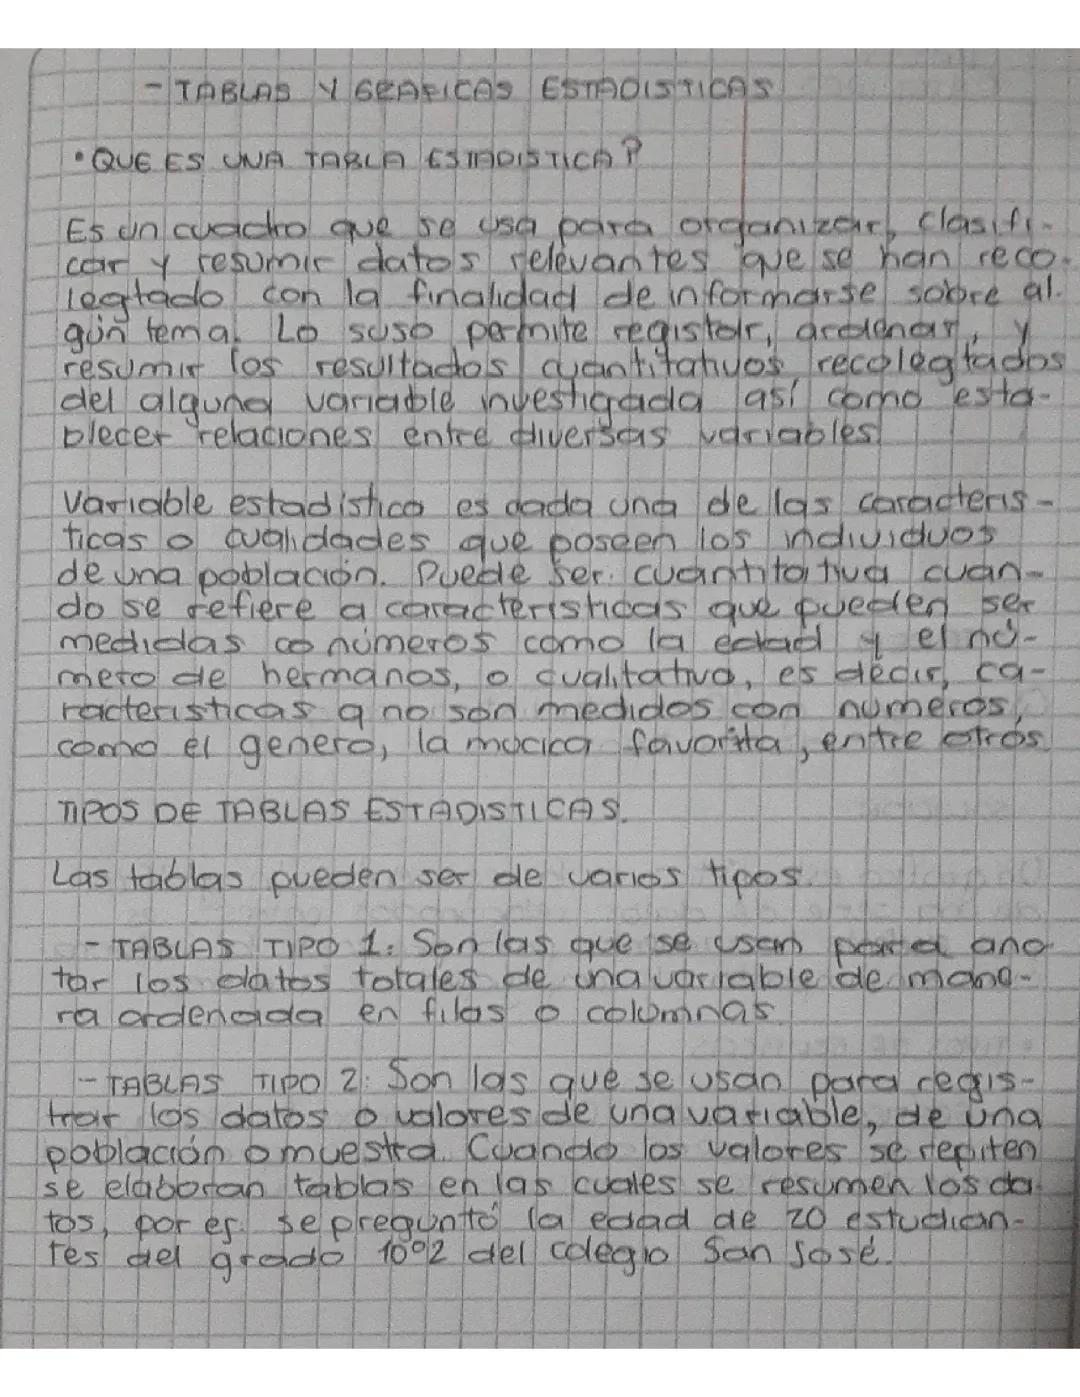 - TABLAS Y GRAFICAS ESTADISTICAS
• QUE ES UNA TABLA ESTADISTICA?
Es un cuadro que se usa para organizar, clasifi-
car y resumir datos relevantes que se han reco-
legtado con la finalidad de informarse sobre al-
gún tema. Lo suso permite registar, ordenar, y
resumir los resultados cuantitativos recolegtados
del alguna variable investigada así como esta-
blecer relaciones entre diversas variables
Variable estadística es cada una de las caracteris-
ticas o cualidades que poseen los individuos
de una población. Puede ser. cuantitativa cuan-
do se refiere a caracteristicas que pueden ser
medidas co números como la edad y el nú-
mero de hermanos, o cualitativa, es decir, ca-
racteristicas q no son medidos con numeros,
como el genero, la mucica favorita, entre otros
TIPOS DE TABLAS ESTADISTICAS.
Las tablas pueden ser de varios tipos.
- TABLAS TIPO 1: Son las que se usan para ano
tar los datos totales de una variable de mane-
ra ordenada en filas o columnas
- TABLAS TIPO 2: Son las que se usan para regis-
trar los datos o valores de una variable, de una
población o muestra. Cuando los valores se repiten
se elaboran tablas en las cuales se resumen los da-
tos, por ej. se preguntó la edad de 20 estudian-
tes del grado 10°2 del colegio San José.